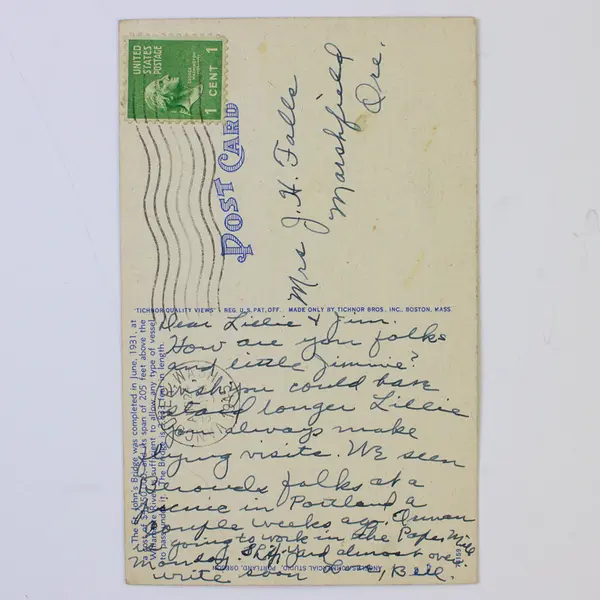 UNITED
STATES
POSTAGE
1 CENT 1
POST CARD
Mrs J. H. Falls
Marshfield
Ore.
"TICHNOR QUALITY VIEWS" REG. U.S. PAT. OFF. MADE ONLY BY TICHNOR BROS., INC., BOSTON, MASS.
The St. John's Bridge was completed in June, 1931, at
a cost of span of 205 feet above the
Willamette River is sufficient to allow any type of vessel
to pass under it. The Bridge is in length.
VANCOUVER WASH
Dear Lillie & Jim.
How are you folks
and little Jimmie?
wish you could have
stayed longer Lillie
you always make
flying visits. We seen
folks at a
picnic in Portland a
couple weeks ago.
going to work in the Paper Mill
Monday. Ship yard almost over.
write soon Bell.
PORTLAND, OREGON